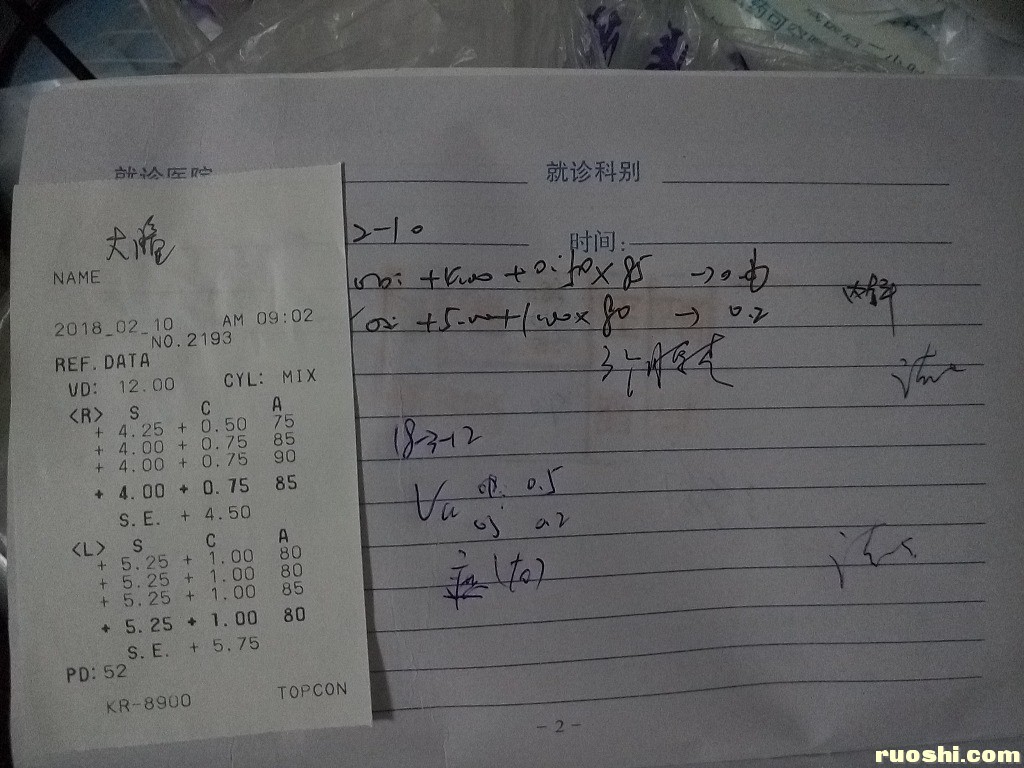 就诊医院
就诊科别
2-10
时间:
大瞳
NAME
2018_02_10 AM 09:02
NO.2193
REF.DATA
VD: 12.00 CYL: MIX
<R> S C A
+ 4.25 + 0.50 75
+ 4.00 + 0.75 85
+ 4.00 + 0.75 90
+ 4.00 + 0.75 85
S.E. + 4.50
<L> S C A
+ 5.25 + 1.00 80
+ 5.25 + 1.00 80
+ 5.25 + 1.00 85
+ 5.25 + 1.00 80
S.E. + 5.75
PD: 52
KR-8900 TOPCON
× 85 →
× 80 → 0.2
18-3-12
0.5
0.2
- 2 -
ruoshi.com